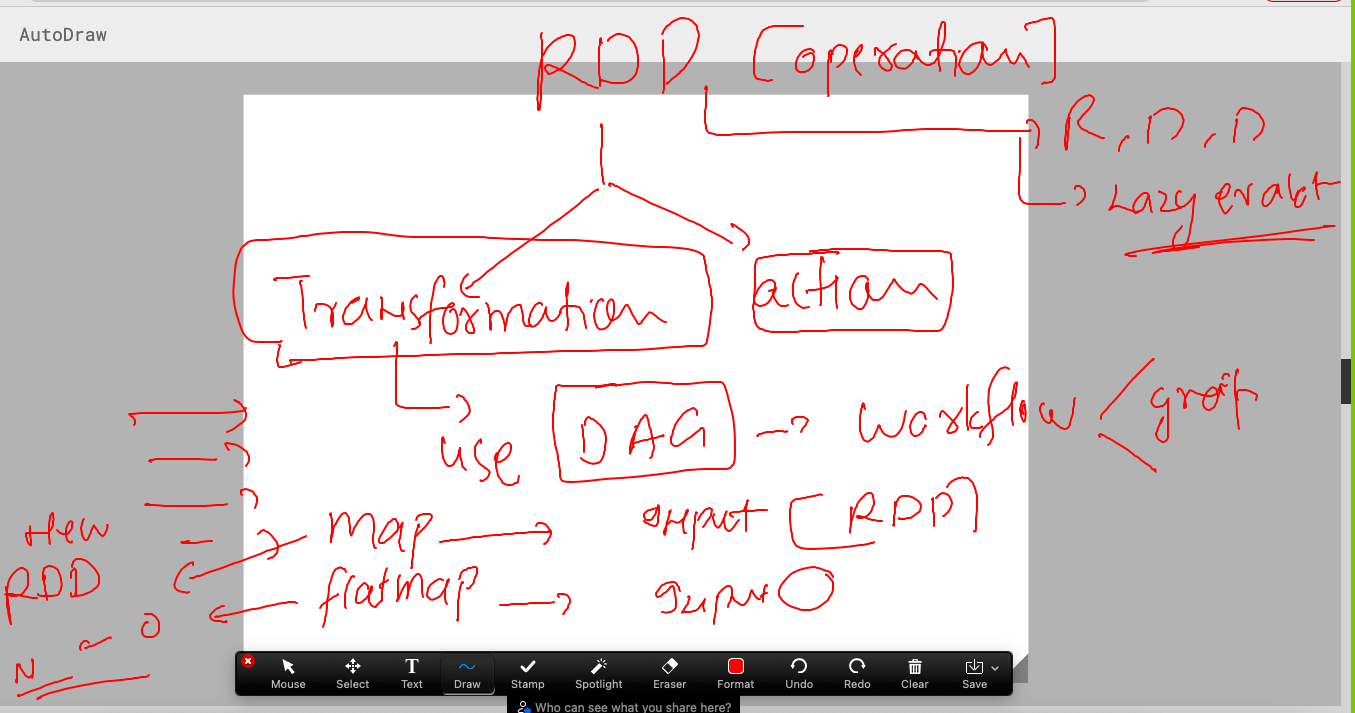 AutoDraw
RDD [operation]
R, D, D
Lazy evalut
Transformation
action
use DAG → workflow < graph
map → input [RDD]
New
RDD
flatmap → input
N - 0
Mouse Select Text Draw Stamp Spotlight Eraser Format Undo Redo Clear Save
Who can see what you share here?